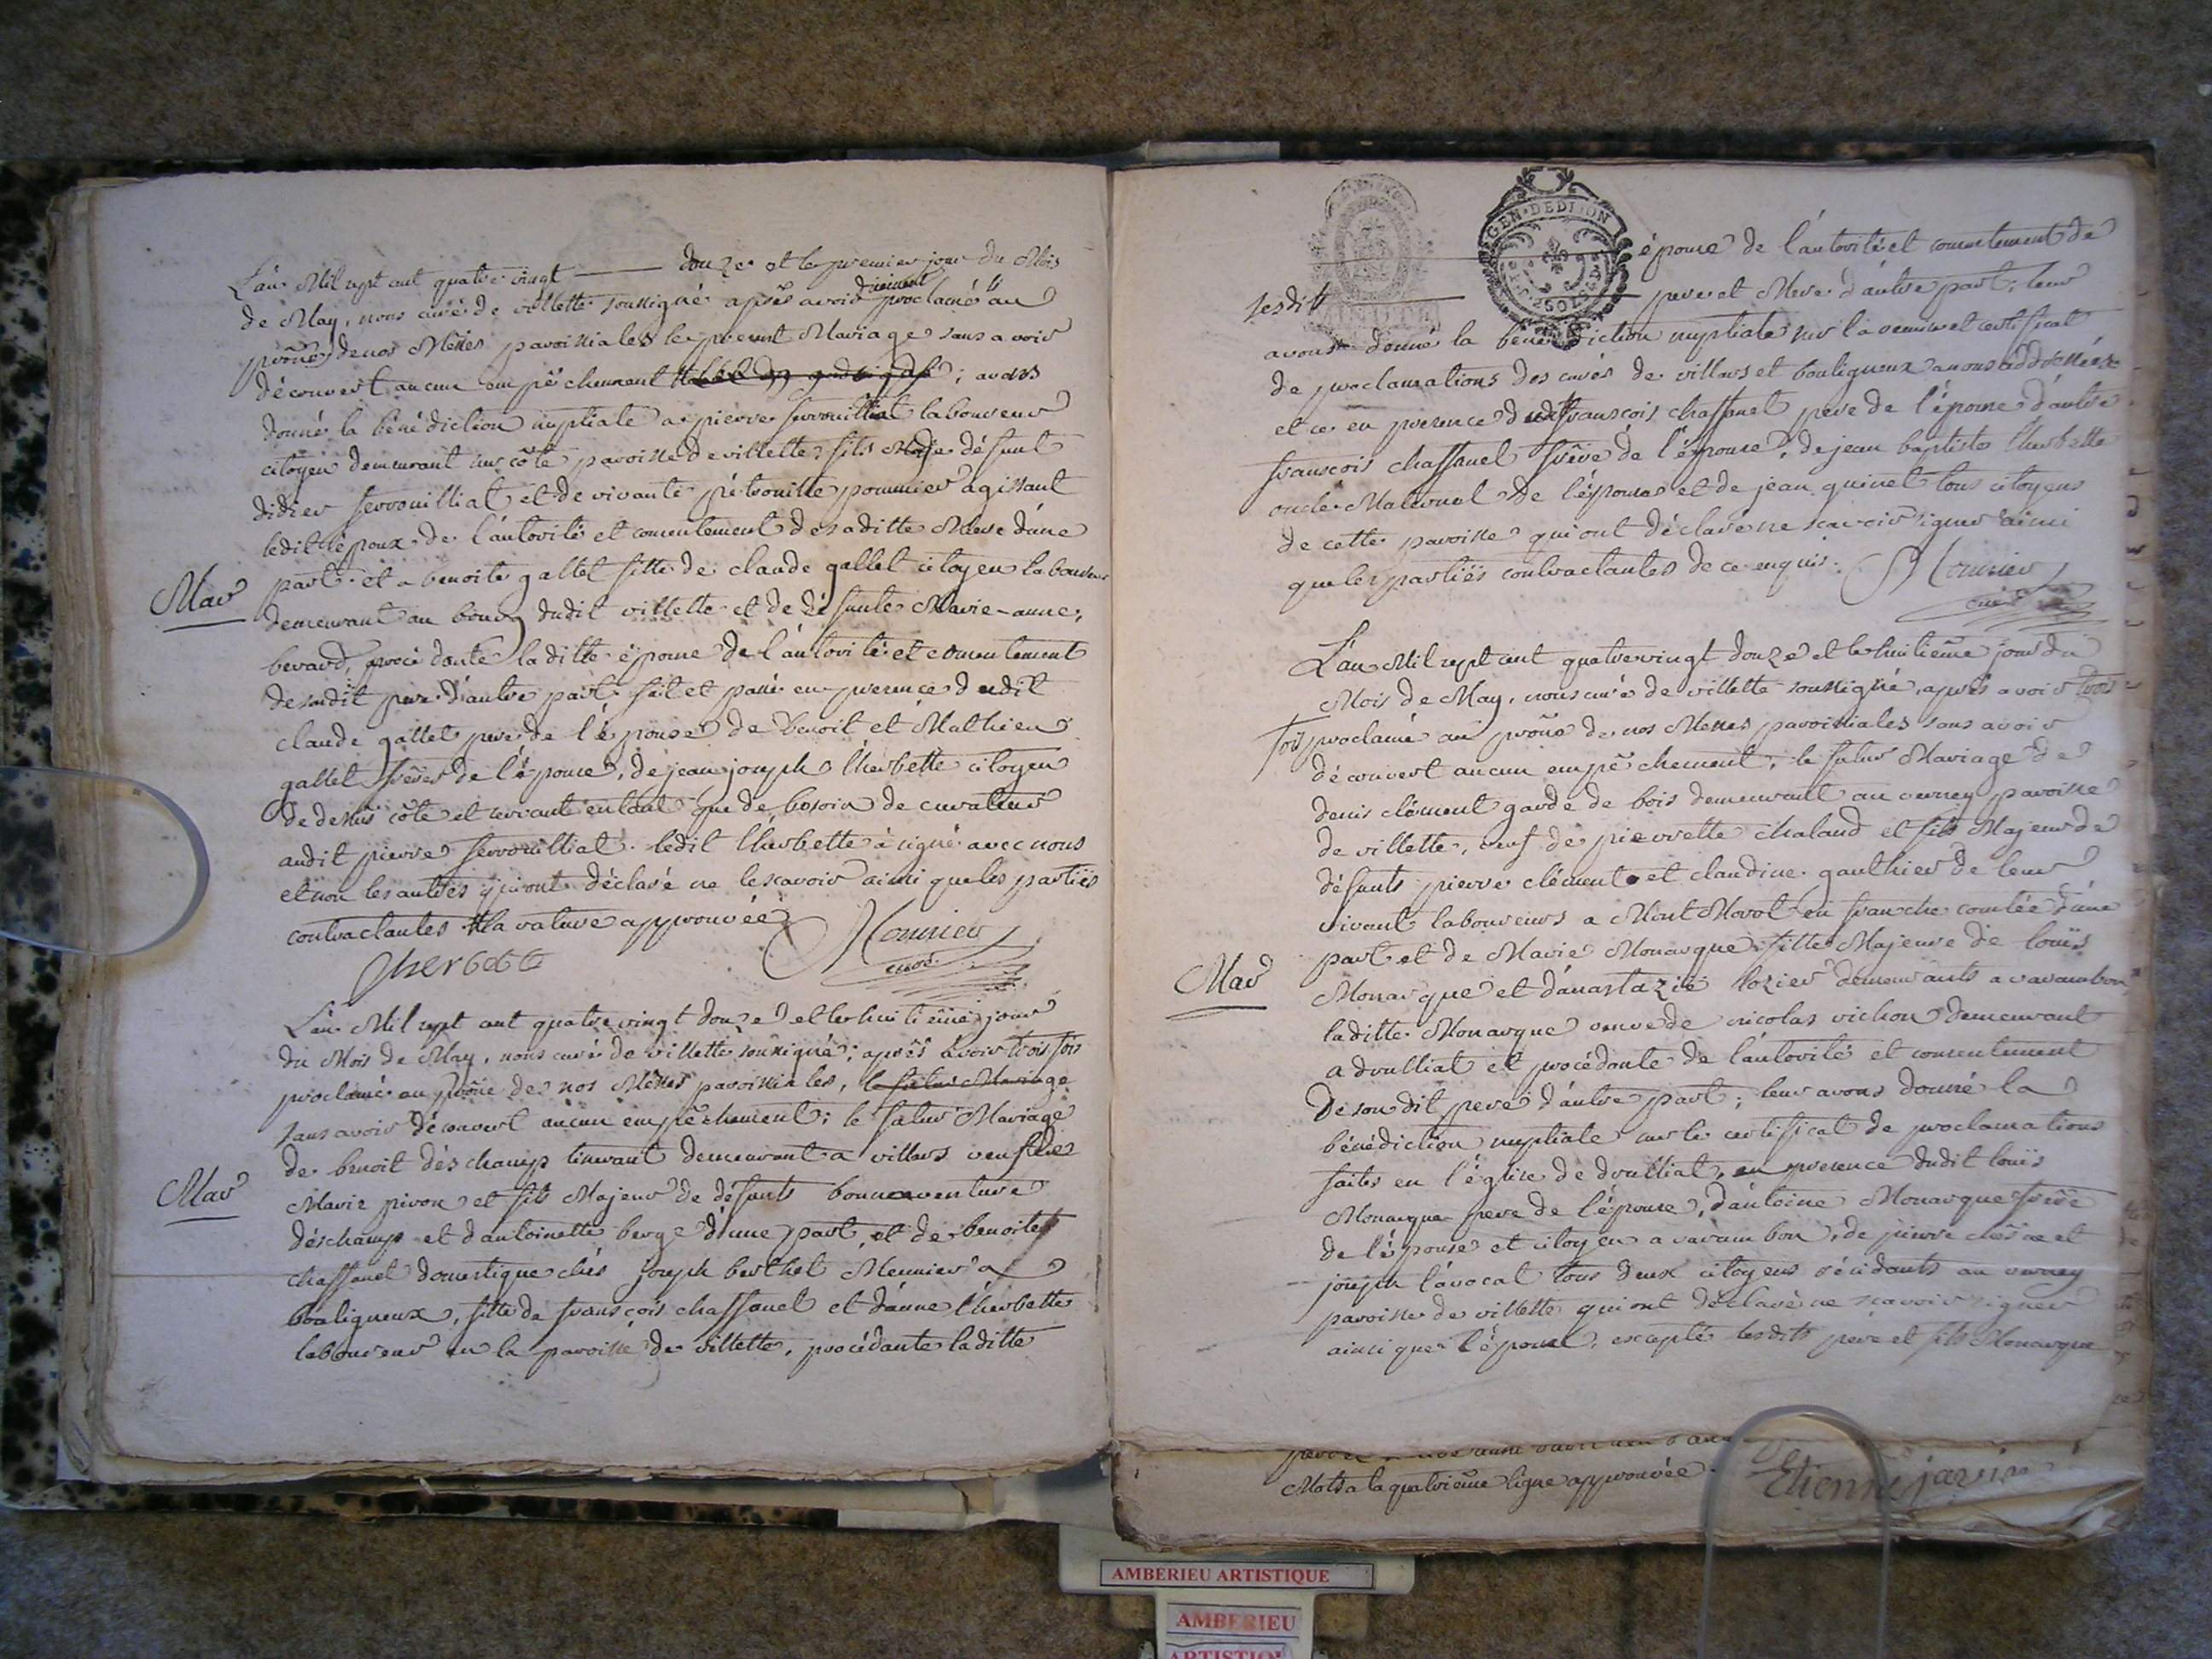 L'an Mil sept cent quatre vingt ——— douze et le premier jour du Mois
de May, nous curé de villette soussigné après avoir duement proclamé au
prône de nos Messes paroissiales le présent Mariage sans avoir
découvert aucun empêchement ; avons
donné la bénédiction nuptiale a pierre ferrouilliat laboureur
citoyen demeurant sur côte paroisse de villette, fils de défunt
didier ferrouilliat et de vivante pétronille pommier agissant
ledit époux de l'autorité et consentement de sa ditte Mere d'une
part et a benoite gallet fille de claude gallet citoyen laboureur
Mar
demeurant au bourg dudit villette et de défunte Marie-anne
berard, procédante laditte épouse de l'autorité et consentement
de sondit pere d'autre part fait et passé en presence dudit
claude gallet pere de l'épouse de Benoit et Mathieu
gallet frères de l'épouse, de jean joseph lherbette citoyen
de dessus côte et servant entant que de besoin de curateur
audit pierre ferrouilliat. ledit lherbette à signé avec nous
et non les autres qui ont déclaré ne le scavoir ainsi que les parties
contractantes la rature approuvée
Monnier
curé
lherbette
L'an Mil sept cent quatre vingt douze et le huitième jour
du Mois de May, nous curé de villette soussigné, après avoir trois fois
proclamé au prône de nos Messes paroissiales, le futur Mariage
sans avoir découvert aucun empêchement ; le futur Mariage
de benoit déschamp demeurant a villars veuf de
Mar
Marie pivon et fils Majeur de défunts bonnaventure
déschamp et d'antoinette berge d'une part, et de benoite
chaffanel domestique chés joseph berthet Meunier a
bouligneux, fille de françois chaffanel et d'anne lherbette
laboureur en la paroisse de villette, procédante laditte
GEN·DE DIJON
épouse de l'autorité et consentement de
sesdits ——— pere et Mere d'autre part, leur
avons donné la bénédiction nuptiale sur la remise et certificat
de proclamations des curés de villars et bouligneux a nous addressées
et ce en presence dudit françois chaffanel pere de l'épouse d'autre
françois chaffanel frère de l'épouse, de jean baptiste lherbette
oncle Maternel de l'épouse et de jean quinet tous citoyens
de cette paroisse qui ont déclaré ne scavoir signer ainsi
que les parties contractantes de ce enquis.
Monnier
curé
L'an Mil sept cent quatre vingt douze et le huitième jour du
Mois de May, nous curé de villette soussigné, après avoir trois
fois proclamé au prône de nos Messes paroissiales sans avoir
découvert aucun empêchement, le futur Mariage de
denis clément garde de bois demeurant au verney paroisse
de villette, veuf de pierrette chaland et fils Majeur de
défunts pierre clément et claudine gauthier de leur
vivant laboureurs a Mont Morot en franche comtée d'une
Mar
part et de Marie Monarque fille Majeure de louis
Monarque et d'anastazie lozier demeurants a varambon
laditte Monarque veuve de nicolas vichon demeurant
a druilliat et procédante de l'autorité et consentement
De son dit pere d'autre part ; leur avons donné la
bénédiction nuptiale sur le certificat de proclamations
faites en l'église de druilliat, en presence dudit louis
Monarque pere de l'épouse, d'antoine Monarque frère
de l'épouse et citoyen a varambon, de pierre chêne et
joseph l'avocat tous deux citoyens résidants au verney
paroisse de villette qui ont déclaré ne scavoir signer
ainsi que l'épouse, excepté lesdits père et fils Monarque
Mots a la quatrième ligne approuvée.
Etienne javin
AMBERIEU ARTISTIQUE
AMBERIEU
ARTISTIQUE